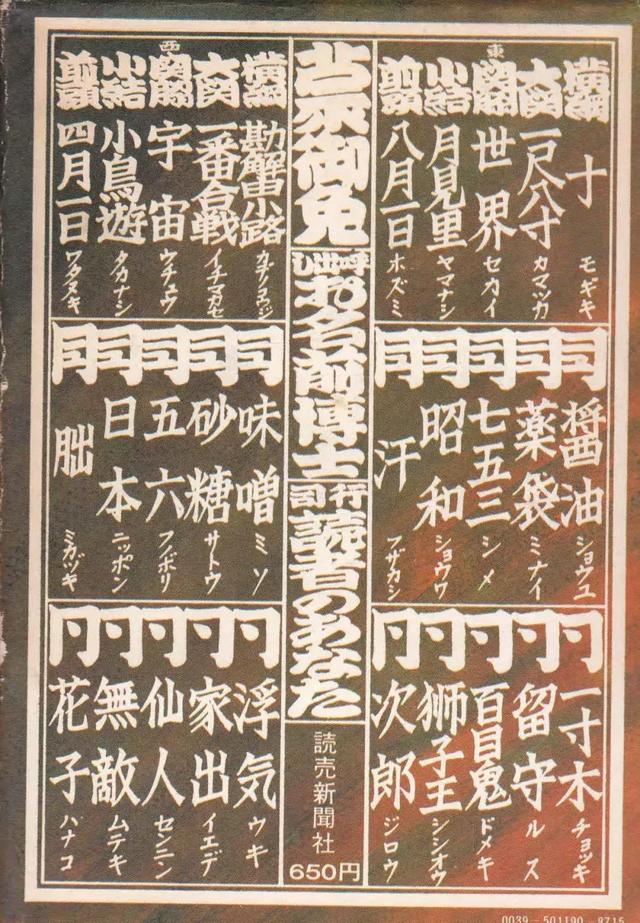 東
横綱 十 モギキ
大関 一尺八寸 カマツカ
関脇 世界 セカイ
小結 月見里 ヤマナシ
前頭 八月一日 ホズミ
同 醤油 ショウユ
同 薬袋 ミナイ
同 七五三 シメ
同 昭和 ショウワ
同 汗 フザカシ
同 一寸木 チョッキ
同 留守 ルス
同 百目鬼 ドメキ
同 獅子王 シシオウ
同 次郎 ジロウ
御免
呼出し お名前博士
行司 読者のあなた
読売新聞社
650円
西
横綱 勘解由小路 カデノコウジ
大関 一番合戦 イチマカセ
関脇 宇宙 ウチュウ
小結 小鳥遊 タカナシ
前頭 四月一日 ワタヌキ
同 味噌 ミソ
同 砂糖 サトウ
同 五六 フノボリ
同 日本 ニッポン
同 朏 ミカヅキ
同 浮気 ウキ
同 家出 イエデ
同 仙人 センニン
同 無敵 ムテキ
同 花子 ハナコ
0039-501190-8715